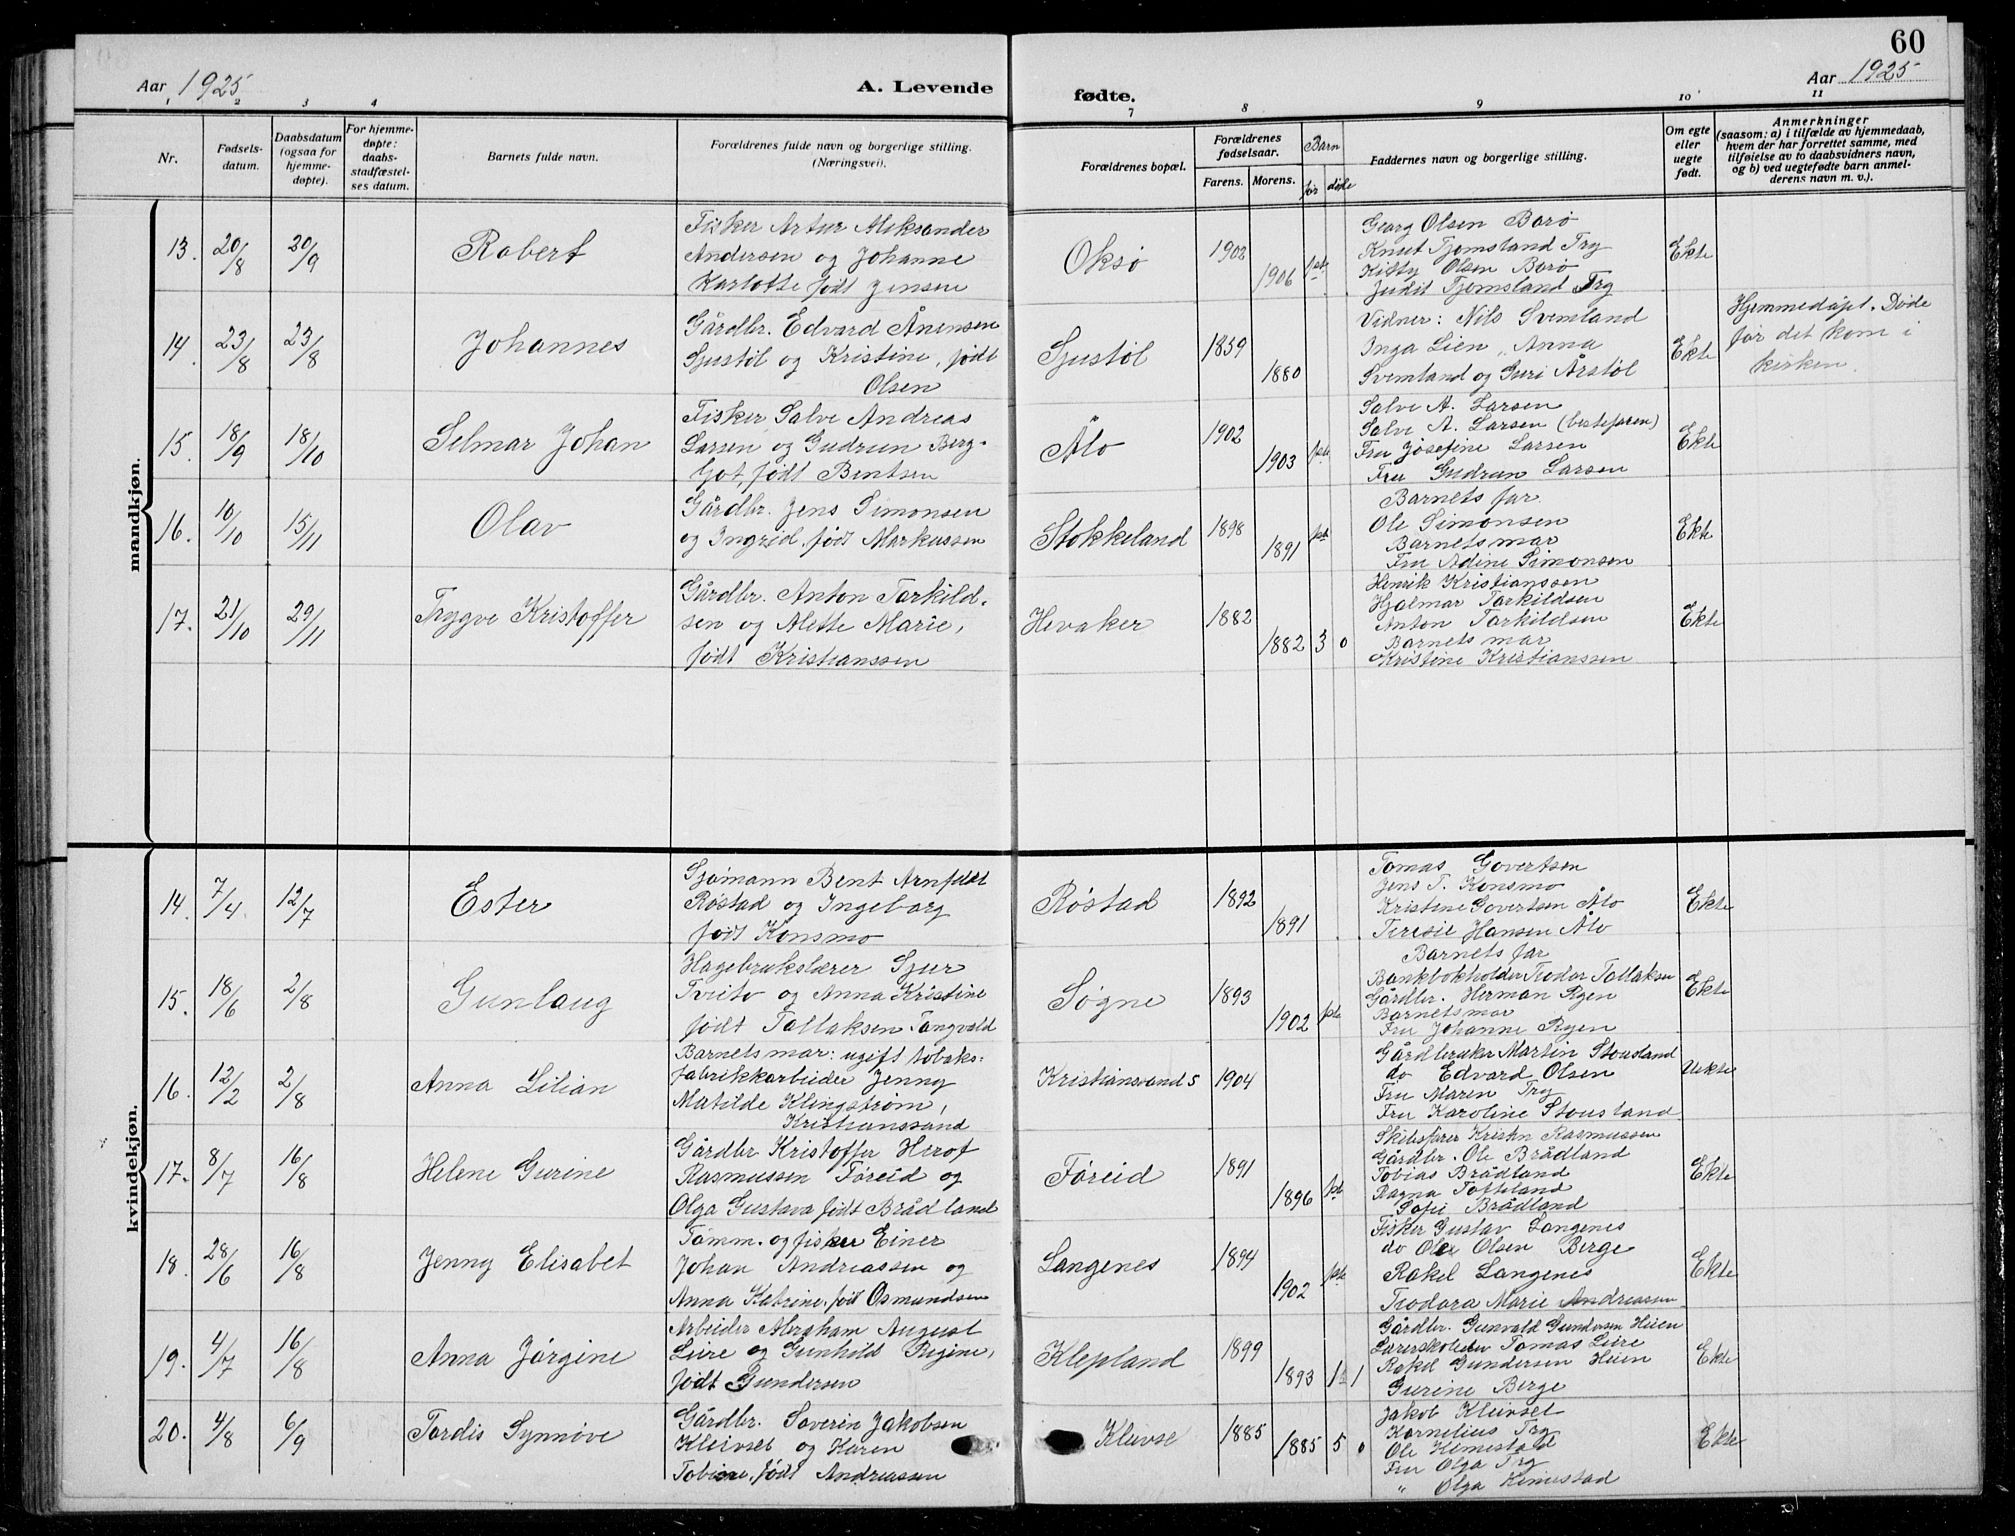 60
Aar 1925
A. Levende
fødte.
Aar 1925
1 2 3 4 7 8 9 10 11
Nr.
Fødsels-
datum.
Daabsdatum
(ogsaa for
hjemme-
døpte).
For hjemme-
døpte:
daabs-
stadfæstel-
ses datum.
Barnets fulde navn.
Forældrenes fulde navn og borgerlige stilling.
(Næringsvei).
Forældrenes bopæl.
Forældrenes
fødselsaar.
Farens. Morens.
Barn
før døde
Faddernes navn og borgerlige stilling.
Om egte
eller
uegte
født.
Anmerkninger
(saasom: a) i tilfælde av hjemmedaab,
hvem der har forrettet samme, med
tilføielse av to daabsvidners navn,
og b) ved uegtefødte barn anmel-
derens navn m. v.).
mandkjøn.
13. 20/8 20/9
Robert
Fisker Artur Aleksander
Andersen og Johanne
Karlotte født Jensen
Oksø
1902
1906
Georg Olsen Borø
Knut Tjomsland Try
Kitty Olsen Borø
Judit Tjomsland Try
Ekte
14. 23/8 23/8
Johannes
Gårdbr. Edvard Ånensen
Sjustøl og Kristine, født
Olsen
Sjustøl
1859
1880
Vidner: Nils Svemland
Inga Lien, Anna
Svemland og Guri Årstøl
Ekte
Hjemmedøpt. Døde
før det kom i
kirken.
15. 18/9 18/10
Selmar Johan
Fisker Salve Andreas
Larsen og Gudrun Berg-
ljot, født Bentsen
Ålo
1902
1903
Salve A. Larsen
Salve A. Larsen (bestefaren)
Fru Josefine Larsen
Fru Gudrun Larsen
Ekte
16. 10/10 15/11
Olav
Gårdbr. Jens Simonsen
og Ingrid, født Markussen
Stokkeland
1898
1891
Barnets far
Ole Simonsen
Barnets mor
Fru Adine Simonsen
Ekte
17. 21/10 29/11
Trygve Kristoffer
Gårdbr. Anton Tarkild-
sen og Alette Marie,
født Kristianssen
Hevaker
1882
1882 3 0
Henrik Kristianssen
Hjalmar Tarkildsen
Anton Tarkildsen
Barnets mor
Kristine Kristianssen
Ekte
kvindekjøn.
14. 7/4 12/7
Ester
Sjømann Bent Arnfeldt
Røstad og Ingeborg
født Konsmo
Røstad
1892
1891
Tomas Govertsen
Jens T. Konsmo
Kristine Govertsen Ålo
Teresie Hansen Ålo
Ekte
15. 18/6 2/8
Gunlaug
Hagebrukslærer Sjur
Tveito og Anna Kristine
født Tallaksen Tangvald
Søgne
1893
1902
Barnets far
Bankbokholder Teodor Tallaksen
Gårdbr. Herman Ryen
Barnets mor
Fru Johanne Ryen
Ekte
16. 12/2 2/8
Anna Lilian
Barnets mor: ugift tobaks-
fabrikkarbeider Jenny
Matilde Klingstrøm,
Kristianssand
Kristiansand S
1904
Gårdbruker Martin Stousland
do Edvard Olsen
Fru Maren Try
Fru Karoline Stousland
Uekte
17. 8/7 16/8
Helene Gurine
Gårdbr Kristoffer Herof
Rasmussen Føreid og
Olga Gustava født Brådland
Føreid
1891
1896
Skibsfører Kristn Rasmussen
Gårdbr. Ole Brådland
Tobias Brådland
Ragna Tofteland
Sofie Brådland
Ekte
18. 28/6 16/8
Jenny Elisabet
Tømm. og fisker Einer
Johan Andreassen og
Anna Katrine, født Osmundsen
Langenes
1894
1902
Fisker Gustav Langenes
do Ole Olsen Berge
Rakel Langenes
Teodora Marie Andreassen
Ekte
19. 4/7 16/8
Anna Jørgine
Arbeider Abraham August
Leire og Gunhold Regine,
født Gundersen
Klepland
1899
1893 1 1
Gårdbr. Gunvald Gundersen Heien
Tomas Leire
Rakel Gundersen Heien
Gurine Berge
Ekte
20. 4/8 6/9
Tordis Synnøve
Gårdbr. Soverin Jakobsen
Kleivset og Karen
Tobine, født Andreassen
Kleivse
1885
1885 5 0
Jakob Kleivset
Kornelius Try
Ole Himestad
Fru Olga Try
" Olga Himestad
Ekte